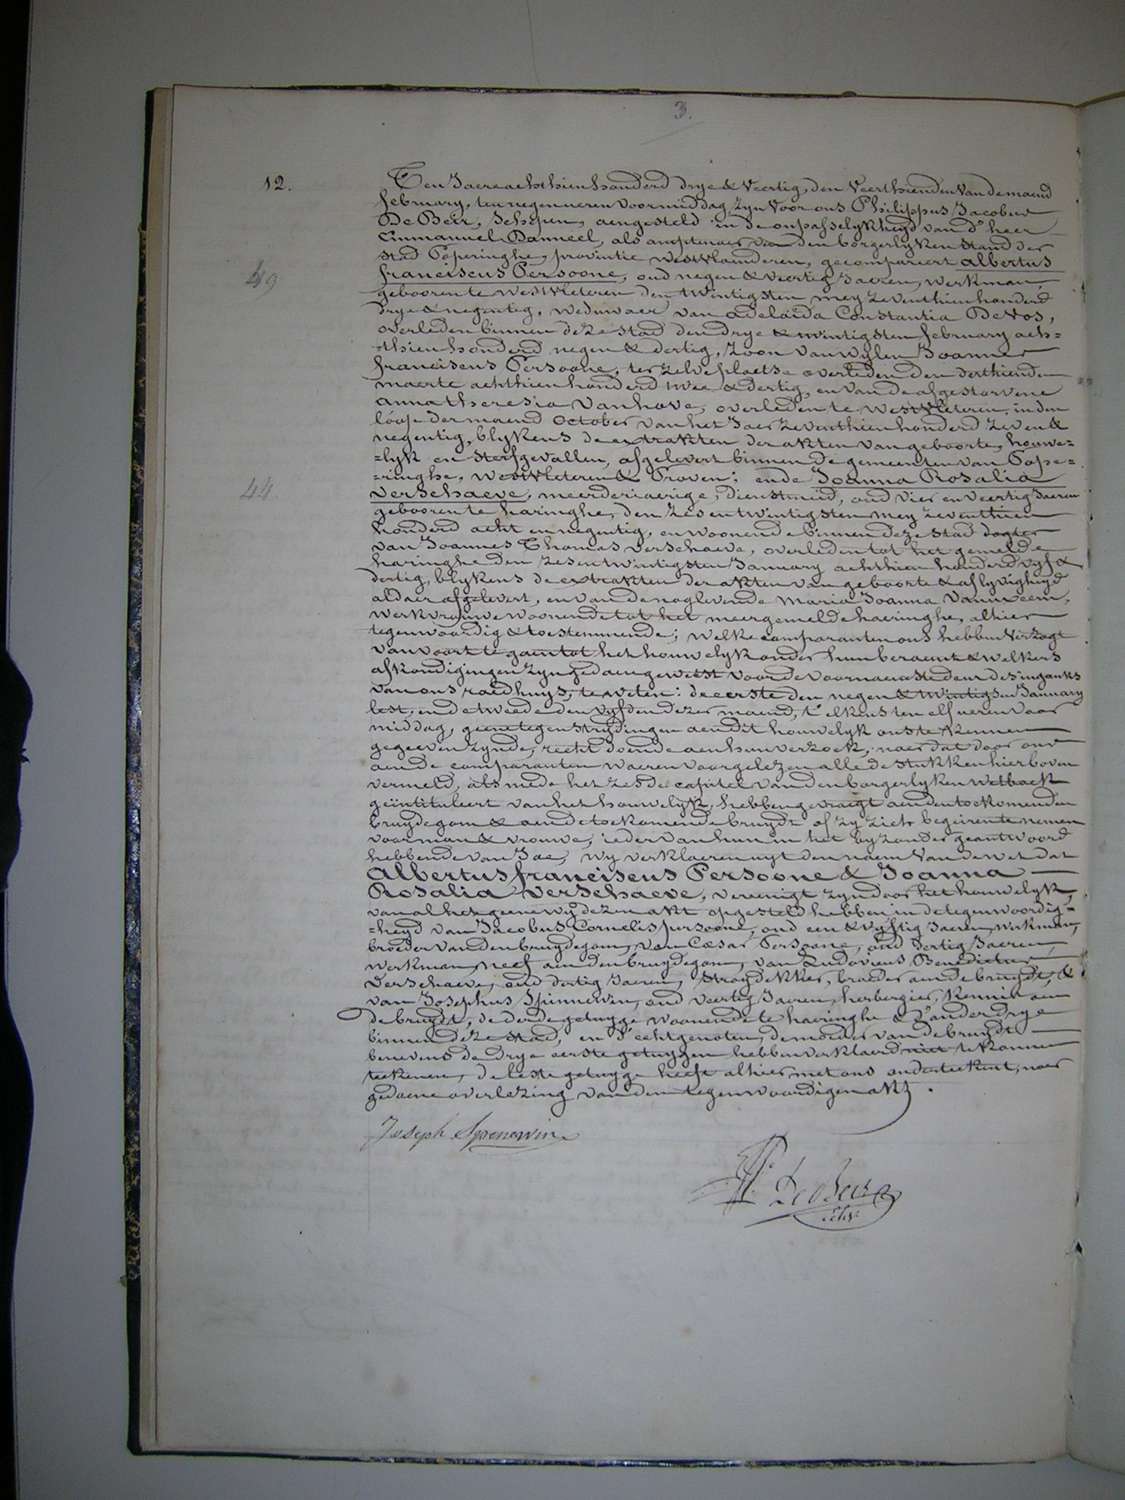 3.
12.
Ten Jaere achthien honderd drye & veertig, den veerthienden van de maend
february, ten negen ueren voormiddag zyn voor ons Philippus Jacobus
De Beir, schepen, aengesteld in de onpasselykheyd van d'heer
Emmanuel Banneel, als amptenaer van den borgerlyken stand der
stad Poperinghe, provintie westvlaenderen, gecompareert Albertus
49
franciscus Persoone, oud negen & veertig Jaeren, werkman,
gebooren te westvleteren den twintigsten mey zeventhien honderd
drye & negentig, weduwaer van Adelaida Constantia De Vos,
overleden binnen deze stad den drye & twintigsten february ach=
=thien honderd negen & dertig, zoon van wylen Joannes
franciscus Persoone, ter zelve plaetse overleden den derthienden
maerte achthien honderd twee & dertig, en van de afgestorvene
Anna theresia Vanhove, overleden te westvleteren, in den
loop der maend October van het Jaer zeventhien honderd zeven &
negentig, blykens de extrakten der akten van geboorte, houwe=
=lyk en sterfgevallen, afgelevert binnen de gemeenten van Pope=
=ringhe, westvleteren & Proven; ende Joanna Rosalia
44
verschaeve, meerderjaerige, dienstmeid, oud vier en veertig Jaeren
gebooren te haringhe, den zes en twintigsten mey zeventhien
honderd acht en negentig, en woonende binnen deze stad dogter
van Joannes Thomas verschaeve, overleden tot het gemelde
haringhe den zes en twintigsten January achthien honderd vyf &
dertig, blykens de extrakten der akten van geboorte & aflyvigheyd
aldaer afgelevert, en van de naglevende Maria Joanna
werkvrouwe woonende tot het meergemelde haringhe, alhier
tegenwoordig & toestemmende; welke comparanten ons hebben verzogt
van voort te gaen tot het houwelyk onder hun beraemt & welkers
afkondigingen zyn gedaen geweest voor de voornaemste deur des ingangs
van ons raedhuys, te weten: de eerste den negen & twintigsten January
lest, en de tweede den vyfden dezer maend, t'elkens ten elf ueren voor
middag, geene tegenstrydingen aen dit houwelyk ons te kennen
gegeeven zynde, recht doende aen hun verzoek, naer dat door ons
aen de comparanten waeren voorgelezen alle de stukken hierboven
vermeld, als mede het zesde capitel van den borgerlyken wetboek
geintituleert van het houwelyk, hebben gevraegt aen den toekomenden
bruydegom & aen de toekomende bruydt of zy zich begeiren te nemen
voor man & vrouwe, ieder van hun in het byzonder geantwoord
hebbende van Jae, wy verklaeren uyt den naem van de wet dat
Albertus franciscus Persoone & Joanna
Rosalia verschaeve, vereenigt zyn door het houwelyk,
van al het geene wy dezen akt opgesteld hebben in de tegenwoordig=
=heyd van Jacobus Cornelis persoone, oud een & vyftig Jaeren, werkman,
broeder van den bruydegom, van Cæsar Persoone, oud dertig Jaeren,
werkman, neef aen den bruydegom, van Ludovicus Benedictus
verschaeve, oud dertig Jaeren, stroydekker, broeder aen de bruydt, &
van Josephus Spinnewin, oud veertig Jaeren, herbergier, kennis aen
de bruydt, de derde getuyge woonende te haringhe & d'ander drye
binnen deze stad, en d'echtgenoten, de moeder van de bruydt
benevens de drye eerste getuygen hebben verklaerd niet te konnen
teekenen, de leste getuyge heeft alhier met ons onderteekent, naer
gedaene overlezing van den tegenwoordigen akt.
Joseph Spenewin
Ph. De Beir
schep.